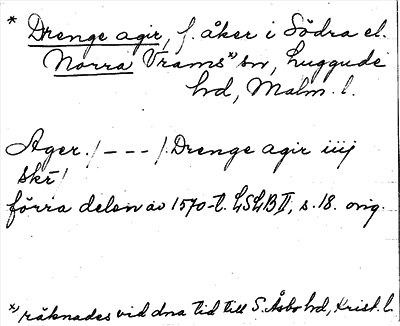 * Drenge agir, f. åker i Södra el.
Norra Vrams*) sn, Luggude
hd, Malm. l.
Ager / - - - / Drenge agir iiij
skr
förra delen av 1570-t. LSLB II, s. 18. orig.
*) räknades vid dna tid till S. Åsbo hd, Krist. l.